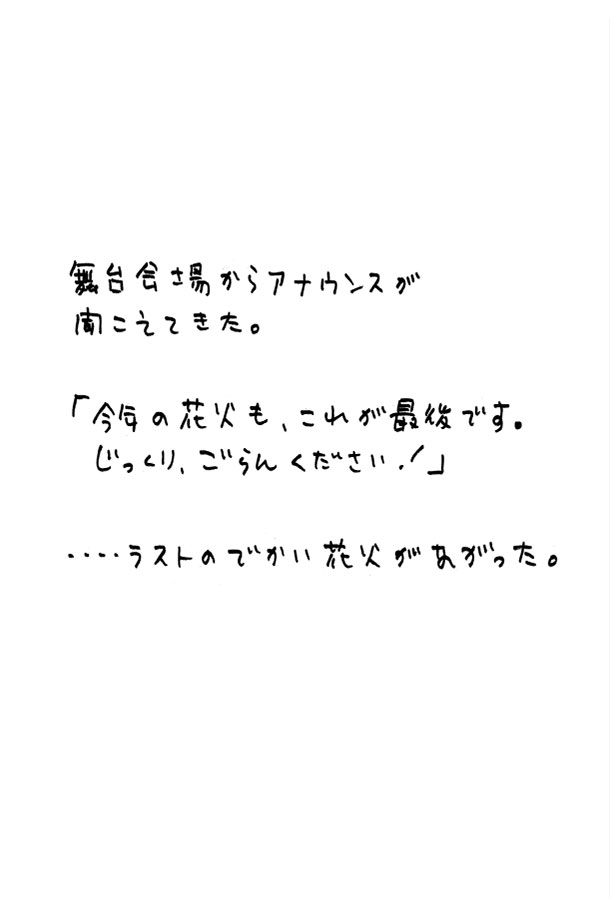 舞台会場からアナウンスが
聞こえてきた。
「今年の花火も、これが最後です。
じっくり、ごらんください！」
‥‥ラストのでかい花火があがった。